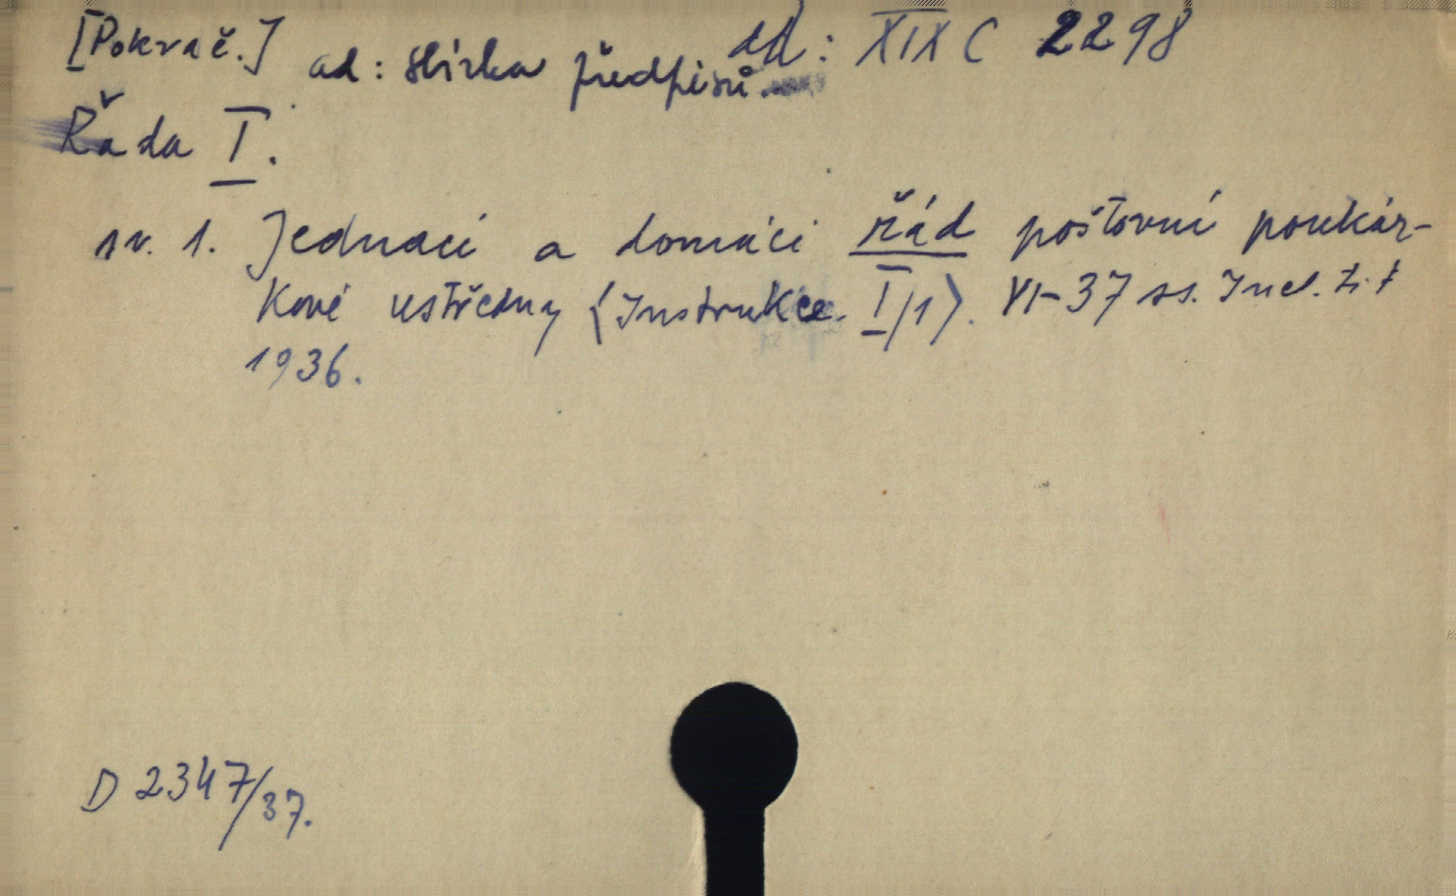 [Pokrač.] ad: sbírka předpisů. ad: XIX C 2298
Řada I.
sv. 1. Jednací a domácí řád poštovní poukáz-
kové ústředny (Instrukce. I/1). VI-37 ss. Incl. tit
1936.
D 2347/37.